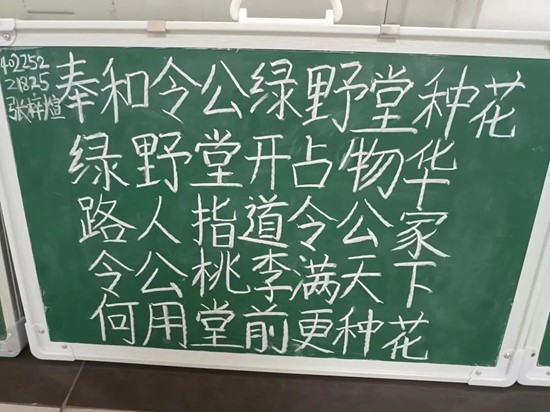 402252
21825
张梓煊
奉和令公绿野堂种花
绿野堂开占物华
路人指道令公家
令公桃李满天下
何用堂前更种花